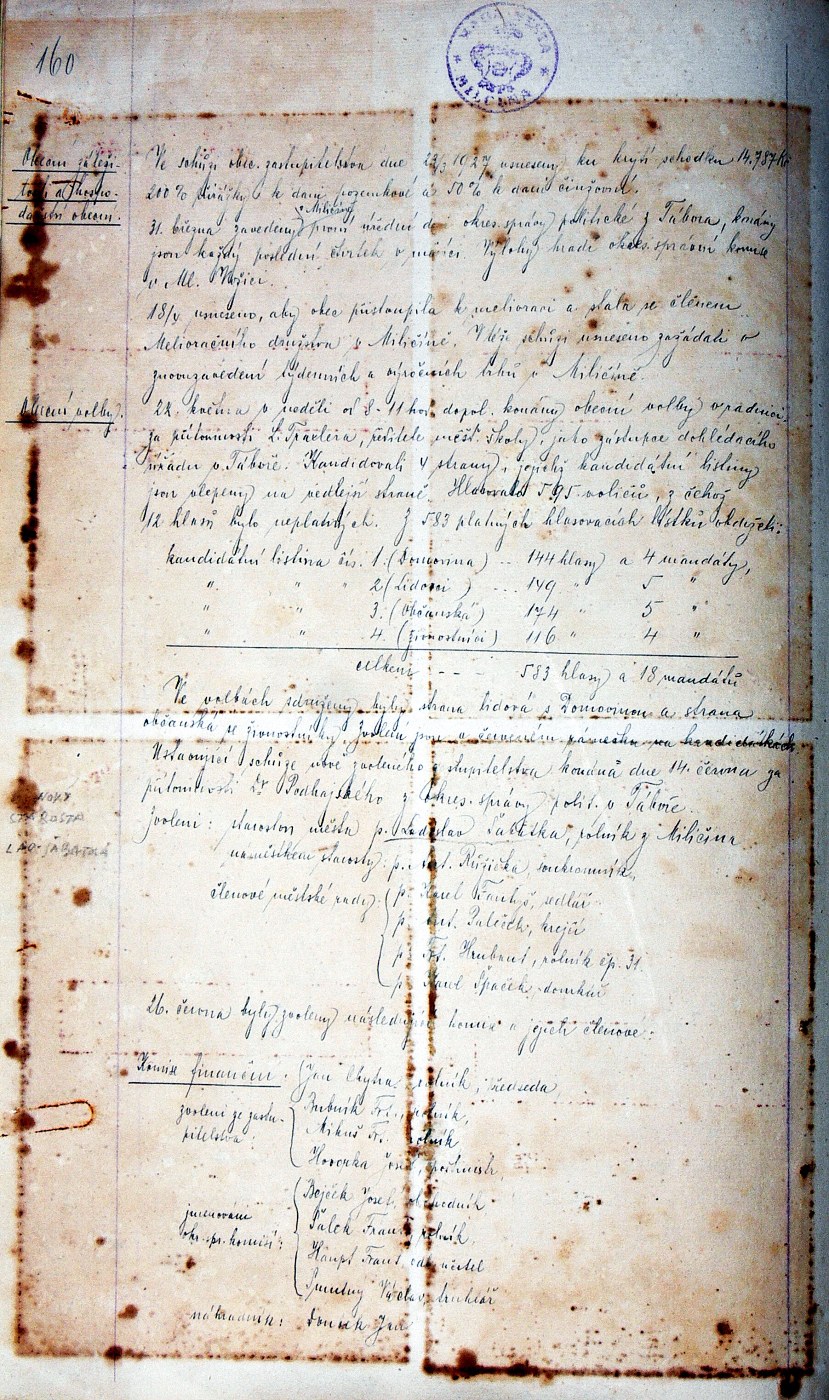 160
MILČÍNA
Obecní záleži-
tosti a hospo-
dářství obecní.
Ve schůzi obec. zastupitelstva dne 22/3 1927 usneseny ku krytí schodku 14.787 Kč
200% přirážky k dani pozemkové a 50% k dani činžovní.
v Miličíně
31. března zavedeny první úřední dni okres. správy politické z Tábora, konány
jsou každý poslední čtvrtek v měsíci. Výlohy hradí okres. správní komise
v Ml. Vožici.
18/V. usneseno, aby obec přistoupila k melioraci a stala se členem
Melioračního družstva v Miličíně. V téže schůzi usneseno zažádati o
znovuzavedení týdenních a výročních trhů v Miličíně.
Obecní volby.
22. května v neděli od 8-11 hod dopol. konány obecní volby v radnici
za přítomnosti L. Traxlera, ředitele měšť. školy, jako zástupce dohlédacího
úřadu v Táboře. Kandidovali 4 strany, jejichž kandidátní listiny
jsou vlepeny na vedlejší straně. Hlasovalo 595 voličů, z čehož
12 hlasů bylo neplatných. Z 583 platných hlasovacích lístků obdrželi:
kandidátní listina čís. 1. (Domovina) -- 144 hlasy a 4 mandáty,
" " " 2 (Lidovci) --- 149 " 5 "
" " 3. (Občanská) 174 " 5 "
" " 4. (živnostníci) 116 " 4 "
celkem - - - 583 hlasy a 18 mandátů
Ve volbách sdruženy byly strana lidová s Domovinou a strana
občanská se živnostníky. Zvolení jsou v červeném rámečku na kandidátkách
Ustavující schůze nově zvoleného zastupitelstva konána dne 14. června za
přítomnosti Dr Podhajského z okres. správy polit. v Táboře.
NOVÝ
STAROSTA
LAD. ŠABATKA
Zvoleni: starostou města p. Ladislav Šabatka, rolník z Miličína
náměstkem starosty: p. Ant. Růžička, soukromník,
členové městské rady: p. Karel Frantyš, sedlář
p. Ant. Paleček, krejčí
p. Frt. Hrubant, rolník čp. 31.
p. Karel Špaček, domkář
26. června byly zvoleny následující komise a jejich členové:
Komise finanční. Jan Chytra, rolník, předseda,
zvoleni ze zastu-
pitelstva:
Bubník Frt., rolník,
Mikuš Fr. rolník
Hovorka Josef, hostinský,
jmenováni
okr. sp. komisí:
Bejček Josef, obchodník
Šálek Frant., rolník,
Haupt Frant. odb. učitel
Smutný Václav, truhlář
náhradník: Jan